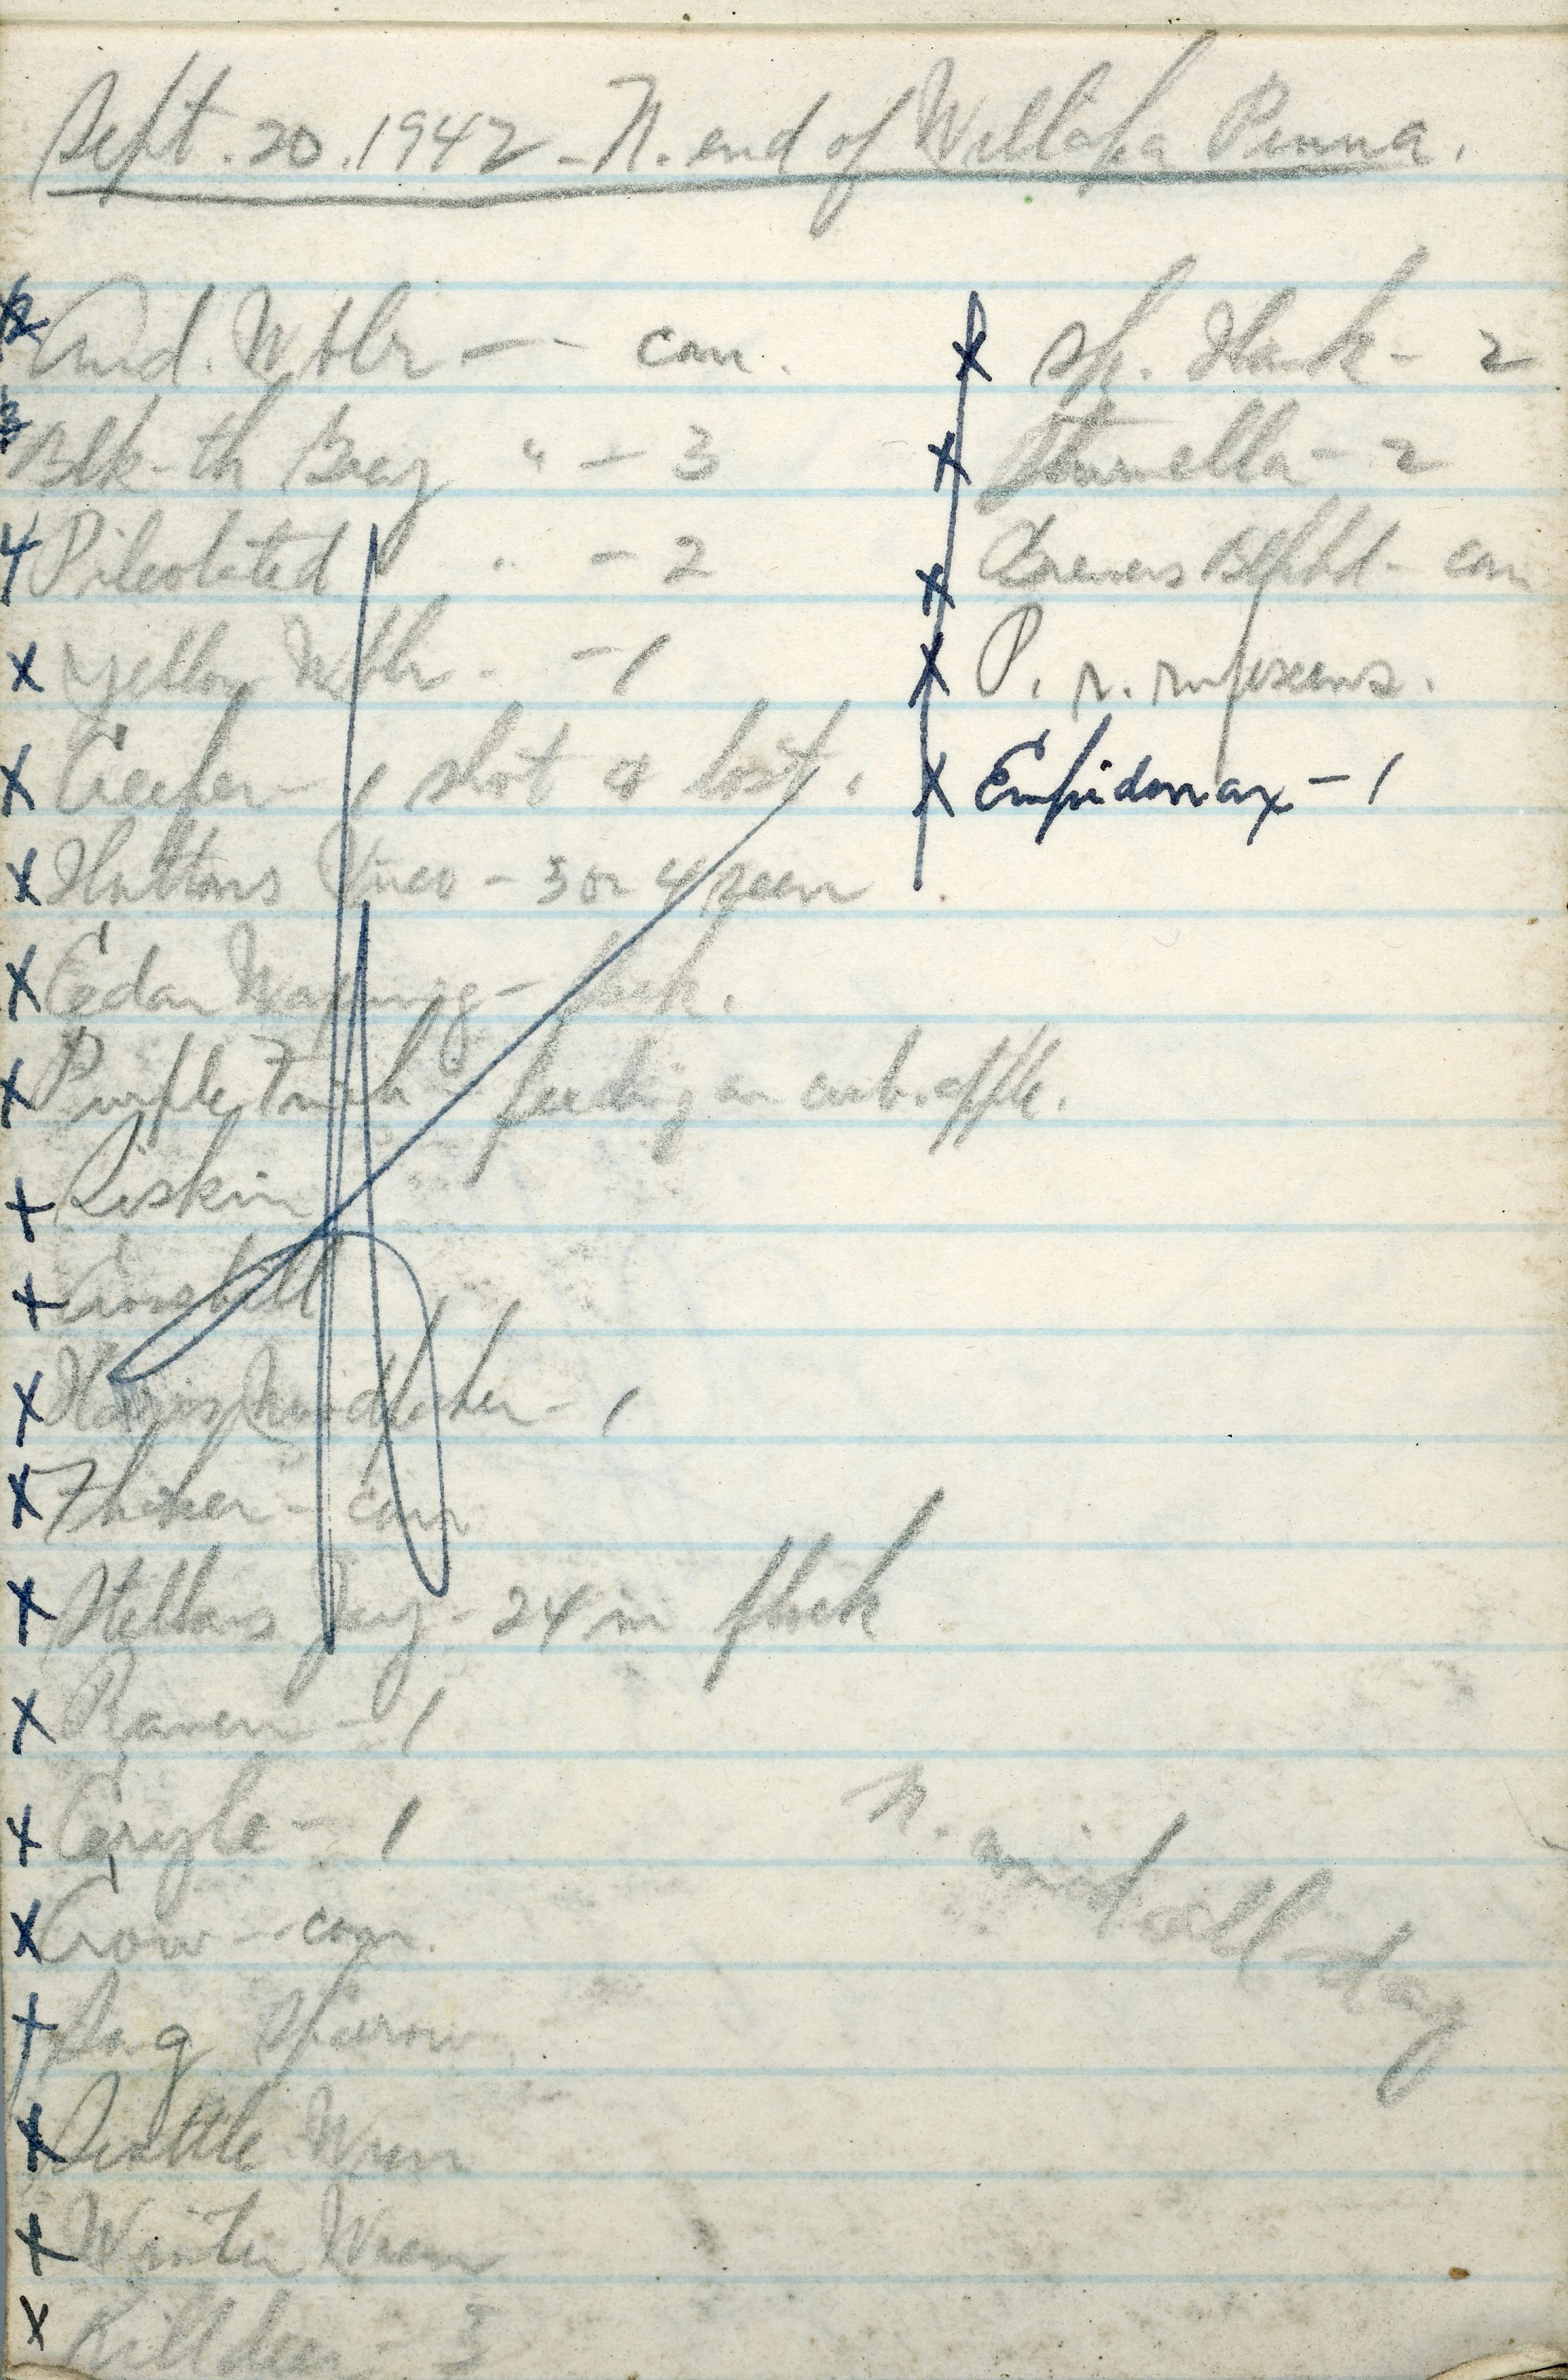 Sept. 20. 1942 - N. end of Willapa Penna.
Aud. Wblr - - com.
Blk-th Gray " - 3
Pileolated " - 2
Yellow Wblr. - 1
Creeper - 1 shot & lost.
Huttons Vireo - 3 or 4 seen
Cedar Waxwing - flock.
Purple Finch - feeding on crab. apple.
Siskin
Crossbill
Harris Woodpecker - 1
Flicker - com
Stellars Jay - 24 in flock
Raven - 1
Ceryle - 1
Crow - com.
Song Sparrow
Seattle Wren
Winter Wren
Killdeer - 3
Sh. Hawk - 2
Sturnella - 2
Brewers Blkbd - com
P. r. rufescens.
Empidonax - 1
N. wind all day